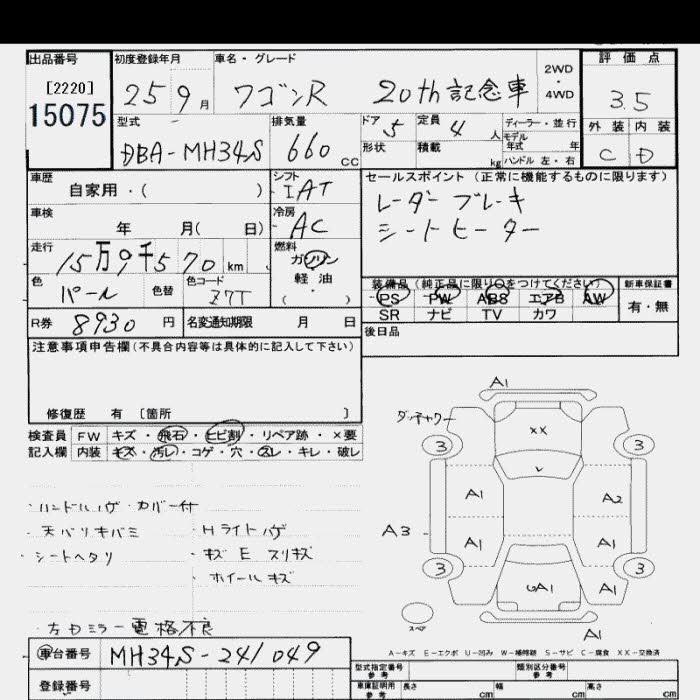 出品番号 初度登録年月 車名・グレード 評価点
[2220] 2WD
15075 25 9月 ワゴンR 20th記念車 ・ 3.5
4WD
型式 排気量 ドア 5 定員 4人 ディーラー・並行 外装 内装
DBA-MH34S 660cc 形状 積載 kg モデル年式 年 C D
ハンドル 左・右
車歴 シフト セールスポイント (正常に機能するものに限ります)
自家用・( ) IAT レーダーブレーキ
車検 冷房 シートヒーター
年 月( 日) AC
走行 燃料
15万9千570km ガソリン
色 色替 色コード 軽油 装備品 (純正品に限り○をつけてください) 新車保証書
パール Z7T ・( ) PS PW ABS エアB AW 有・無
SR ナビ TV カワ
R券 8930円 名変通知期限 月 日 後日品
注意事項申告欄(不具合内容等は具体的に記入して下さい)
修復歴 有 〔箇所 〕
検査員 FW キズ・飛石・ヒビ割・リペア跡・×要
記入欄 内装 キズ・汚レ・コゲ・穴・スレ・キレ・破レ
・ハンドルハゲ カバー付
・天バリキバミ ・Hライトハゲ
・シートヘタリ ・キズ E スリキズ
・ホイールキズ
・左Dミラー電格不良
A1
ダッチャワー
XX
3 3
A1 A2
A3
A1 A1
3 3
A1 A1
スペア
A1
A-キズ E-エクボ U-凹み W-補修跡 S-サビ C-腐食 XX-交換済
車台番号 MH34S-241049
登録番号
型式指定番号 参考 類別区分番号 参考
車庫証明用 参考 長さ cm 幅 cm 高さ cm